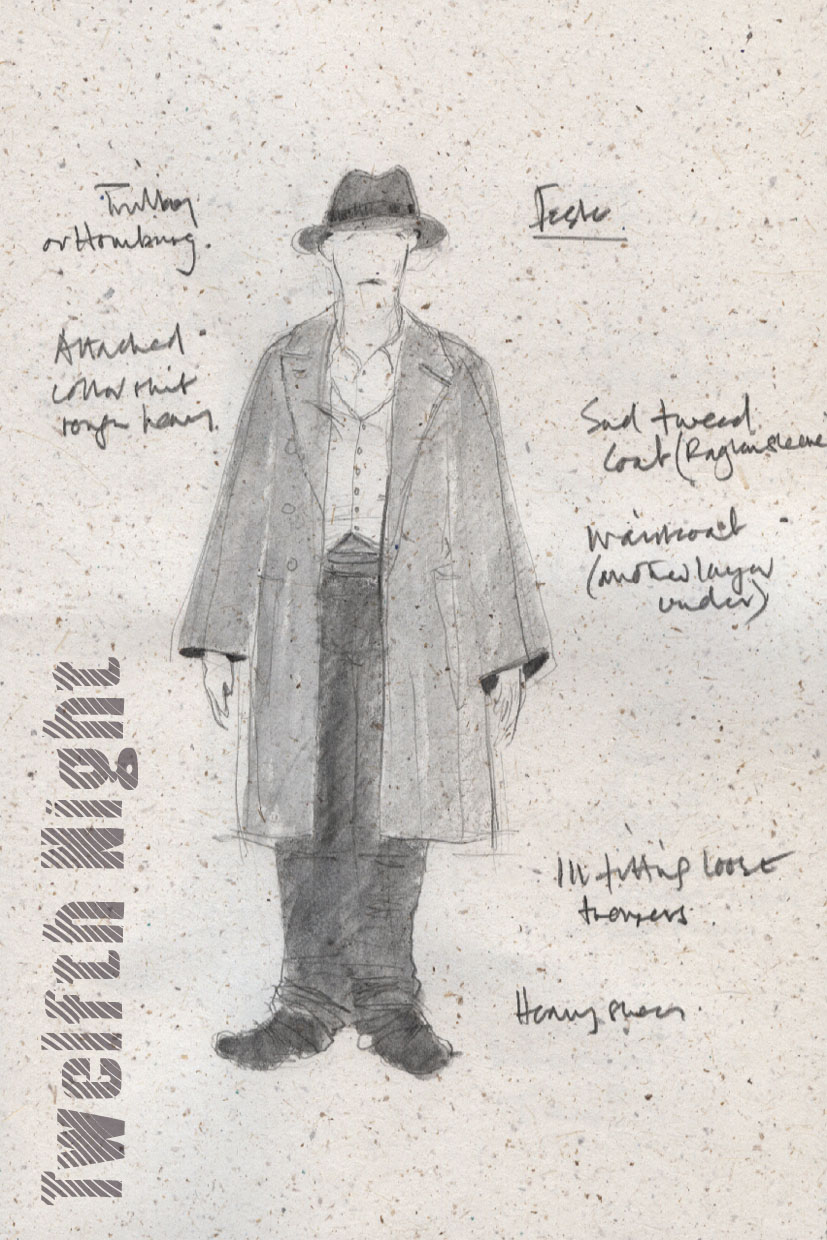 Trilby
or Homburg.
Feste
Attached
collar shirt
rough heavy.
Sad tweed
coat (Raglan sleeve
Waistcoat
(another layer
under)
Ill fitting loose
trousers
Heavy shoes.
Twelfth Night